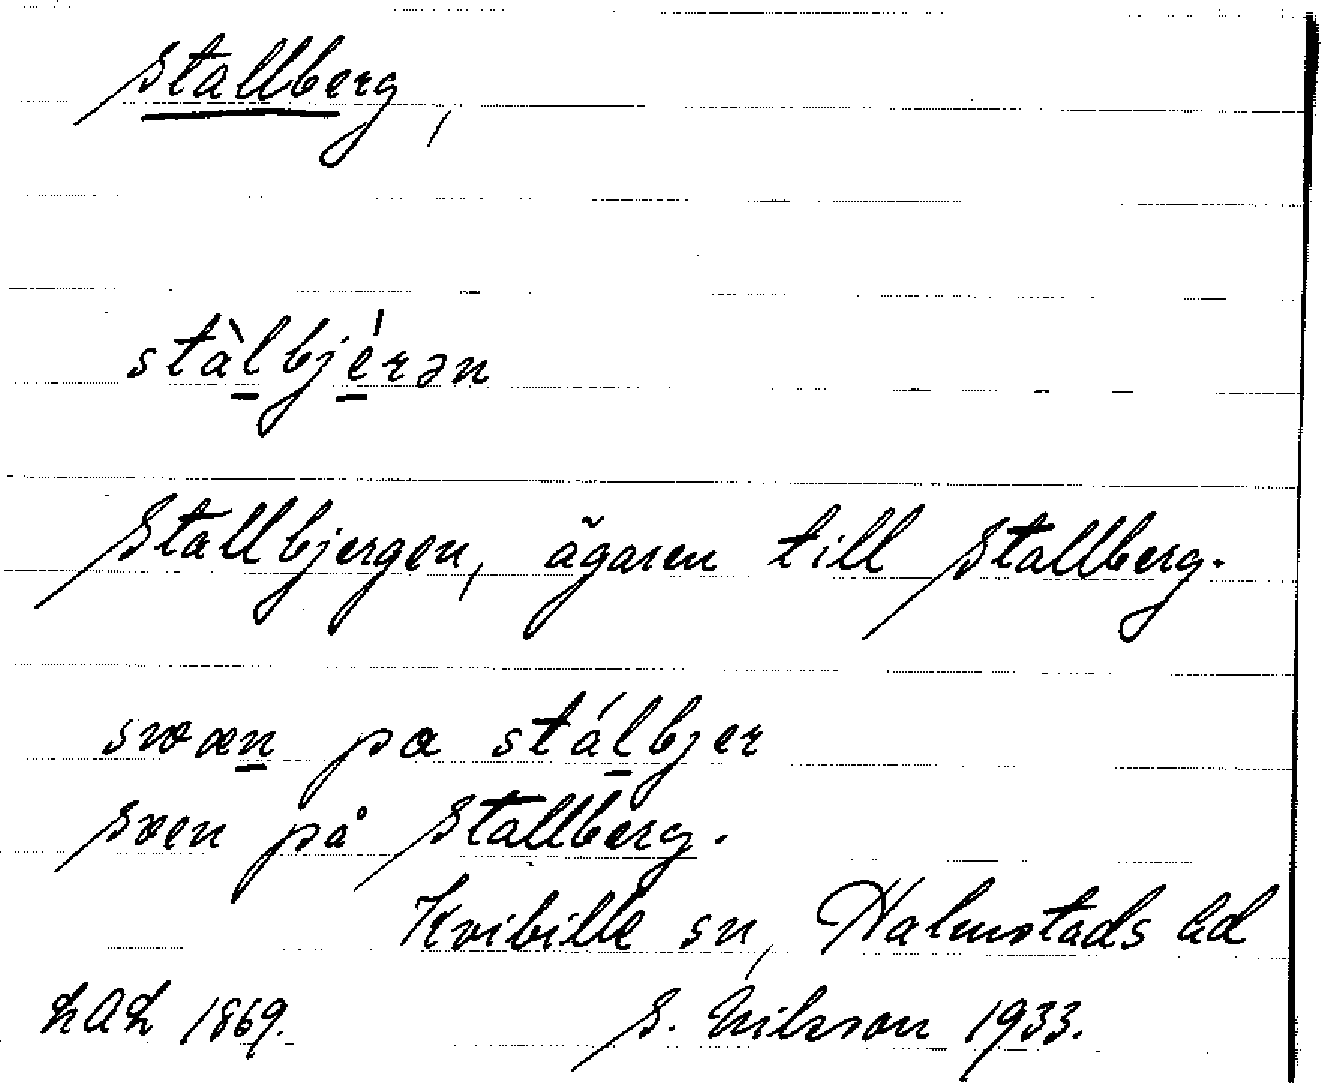 Stallberg,
stàlbjérən
Stallbjergen, ägaren till Stallberg.
svæn pa stálbjer
Sven på Stallberg.
Kvibille sn, Halmstads hd
LAL 1869. S. Nilsson 1933.